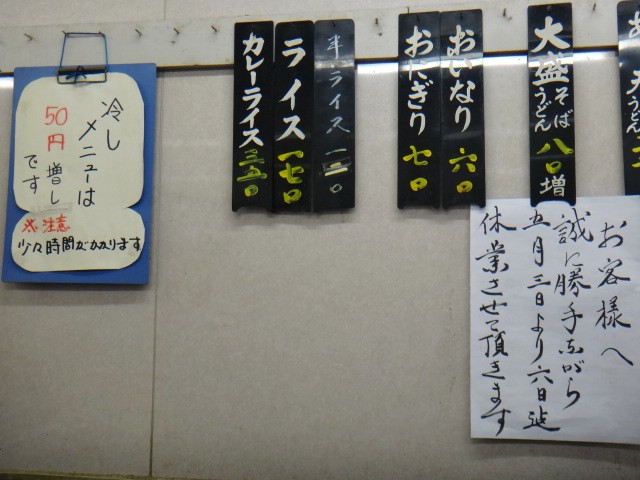 冷し
メニューは
50円増し
です
※注意
少々時間がかかります
カレーライス 三五〇
ライス 一七〇
半ライス 一
おにぎり 七〇
おいなり 六〇
大盛そばうどん 八〇増
お客様へ
誠に勝手ながら
五月三日より六日迄
休業させて頂きます